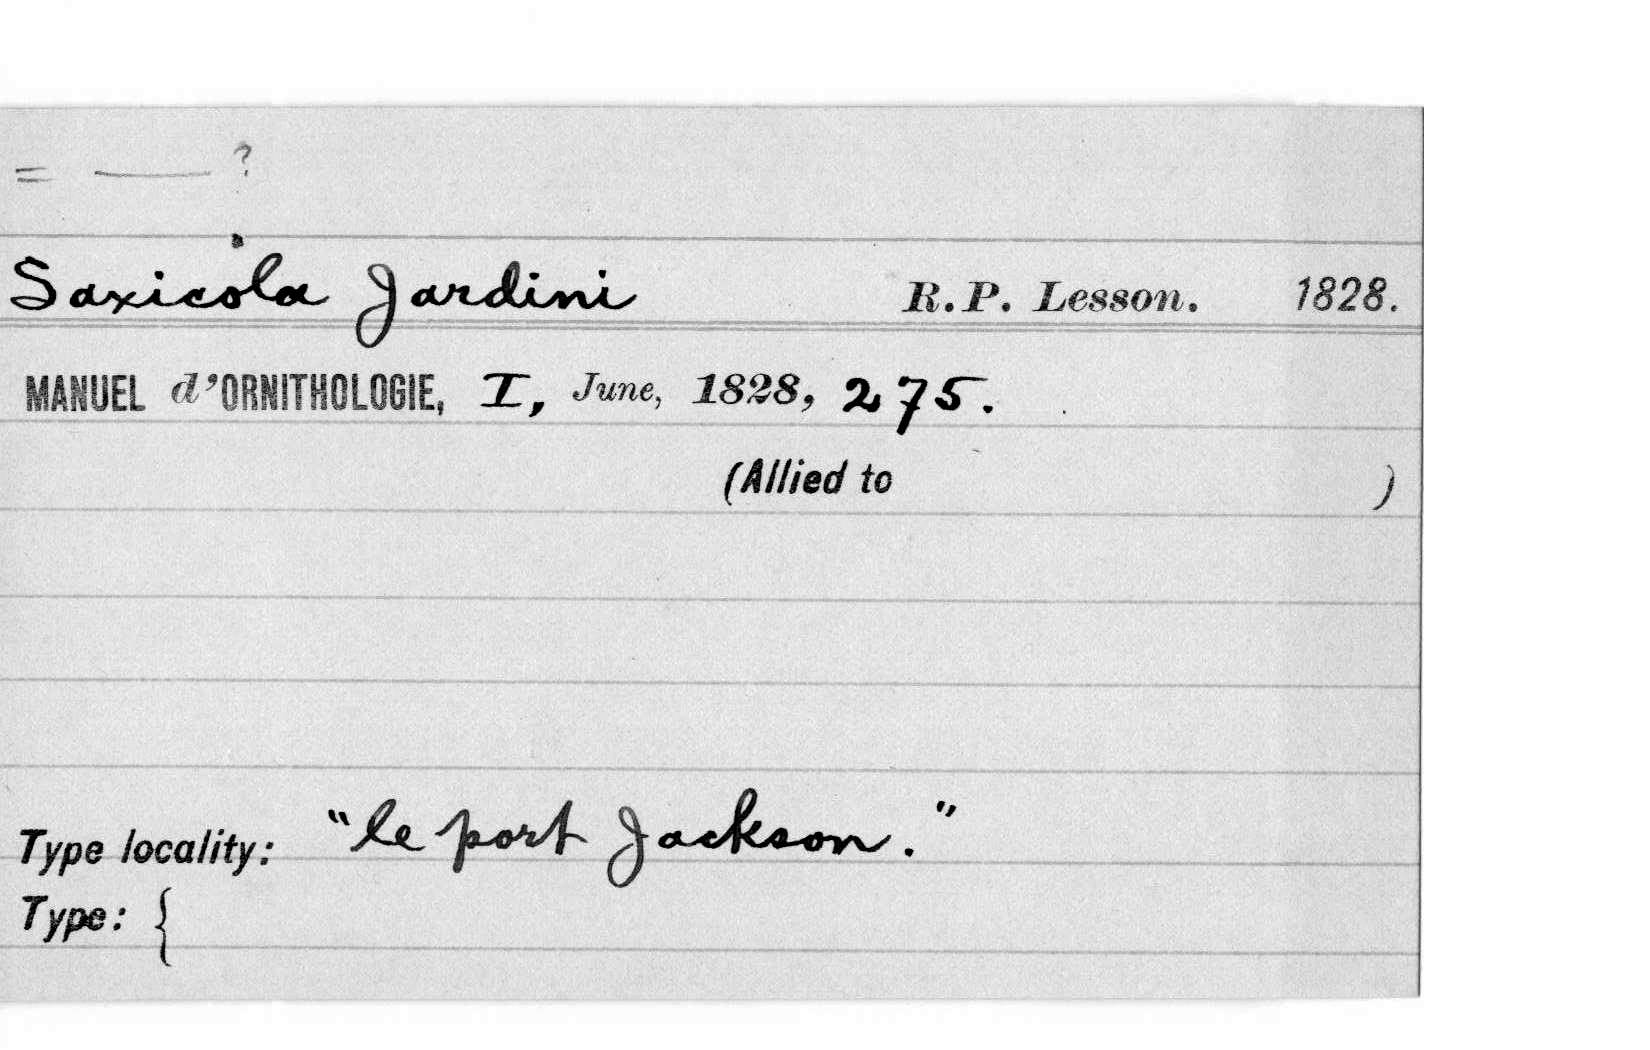 = —— ?
Saxicola Jardini R.P. Lesson. 1828.
MANUEL d'ORNITHOLOGIE, I, June, 1828, 275.
(Allied to )
Type locality: "le port Jackson."
Type: {